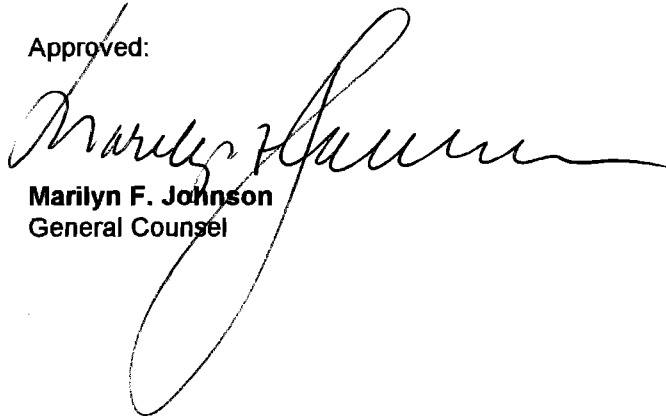 Approved:
Marilyn F. Johnson
Marilyn F. Johnson
General Counsel